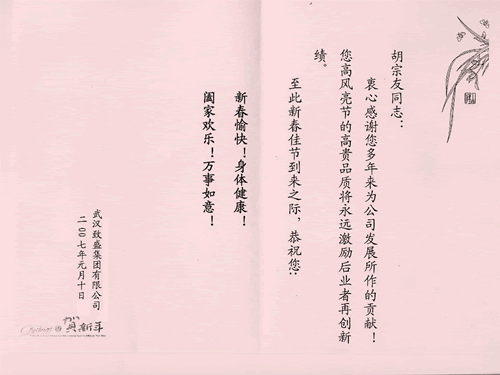 胡宗友同志：
衷心感谢您多年来为公司发展所作的贡献！
您高风亮节的高贵品质将永远激励后业者再创新
绩。
至此新春佳节到来之际，恭祝您：
新春愉快！身体健康！
阖家欢乐！万事如意！
武汉致盛集团有限公司
二〇〇七年元月十日
贺新年